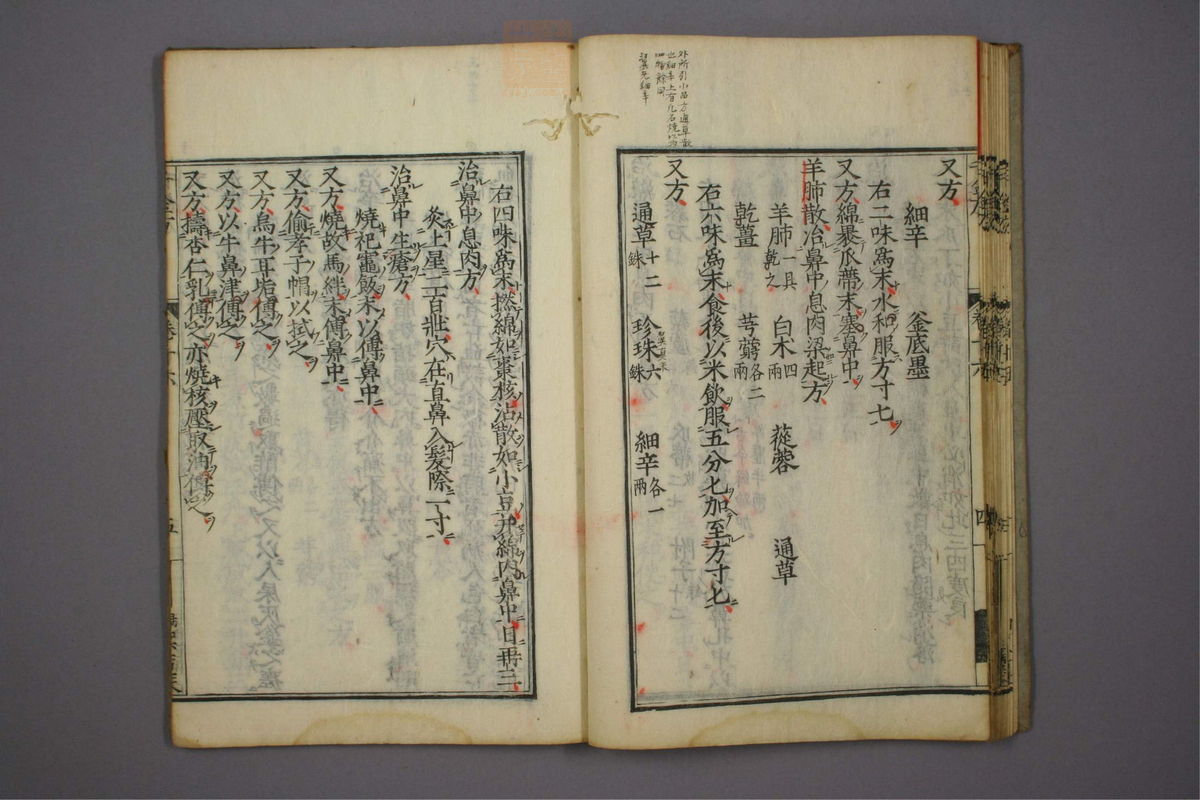 外所引小品方通草散
也細辛上有凡石燒以為
四物餘同
又方
細辛 釜底墨
右二味爲末水和服方寸匕
又方綿裹瓜蔕末塞鼻中
羊肺散治鼻中息肉梁起方
羊肺一具乾之 白朮四兩 蓯蓉 通草
乾薑 芎藭各二兩
右六味爲末食後以米飲服五分匕加至方寸匕
又方
通草十二銖 珍珠六銖 細辛各一兩
右四味爲末撚綿如棗核沾散如小豆并綿内鼻中日再三
治鼻中息肉方
灸上星三百壯穴在直鼻入髮際一寸
治鼻中生瘡方
燒祀竈飯末以傅鼻中
又方燒故馬絆末傅鼻中
又方偷孝子帽以拭之
又方烏牛耳垢傅之
又方以牛鼻津傅之
又方擣杏仁乳傅之亦燒核壓取油傅之